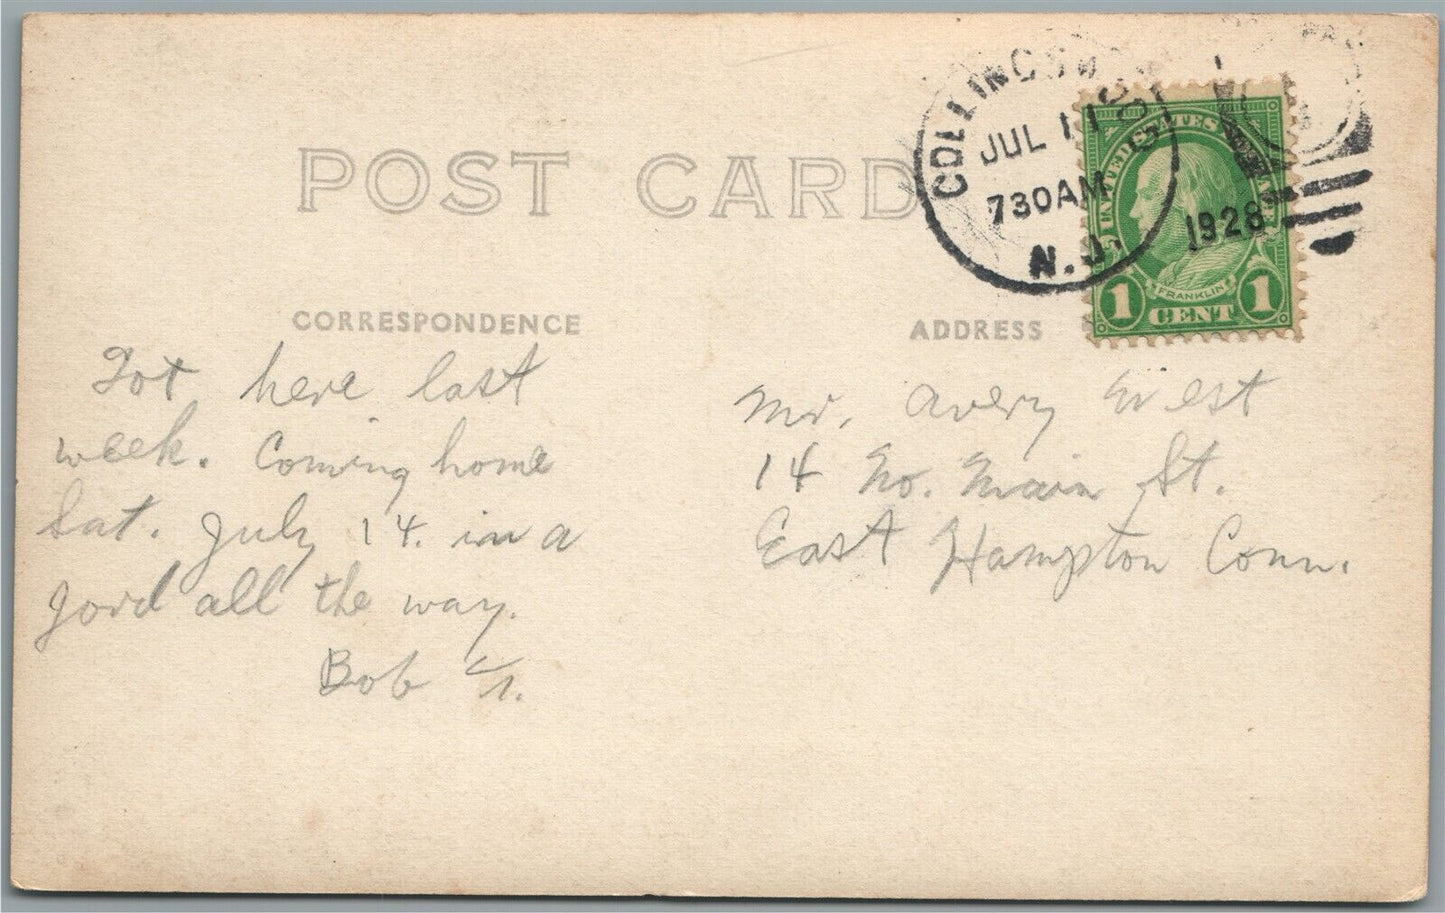 POST CARD
COLLINGSWOOD
JUL 11
730AM
N.J.
1928
UNITED STATES
FRANKLIN
1 CENT 1
CORRESPONDENCE
Got here last
week. Coming home
Sat. July 14. in a
Ford all the way.
Bob
ADDRESS
Mr. Avery West
14 No. Main St.
East Hampton Conn.